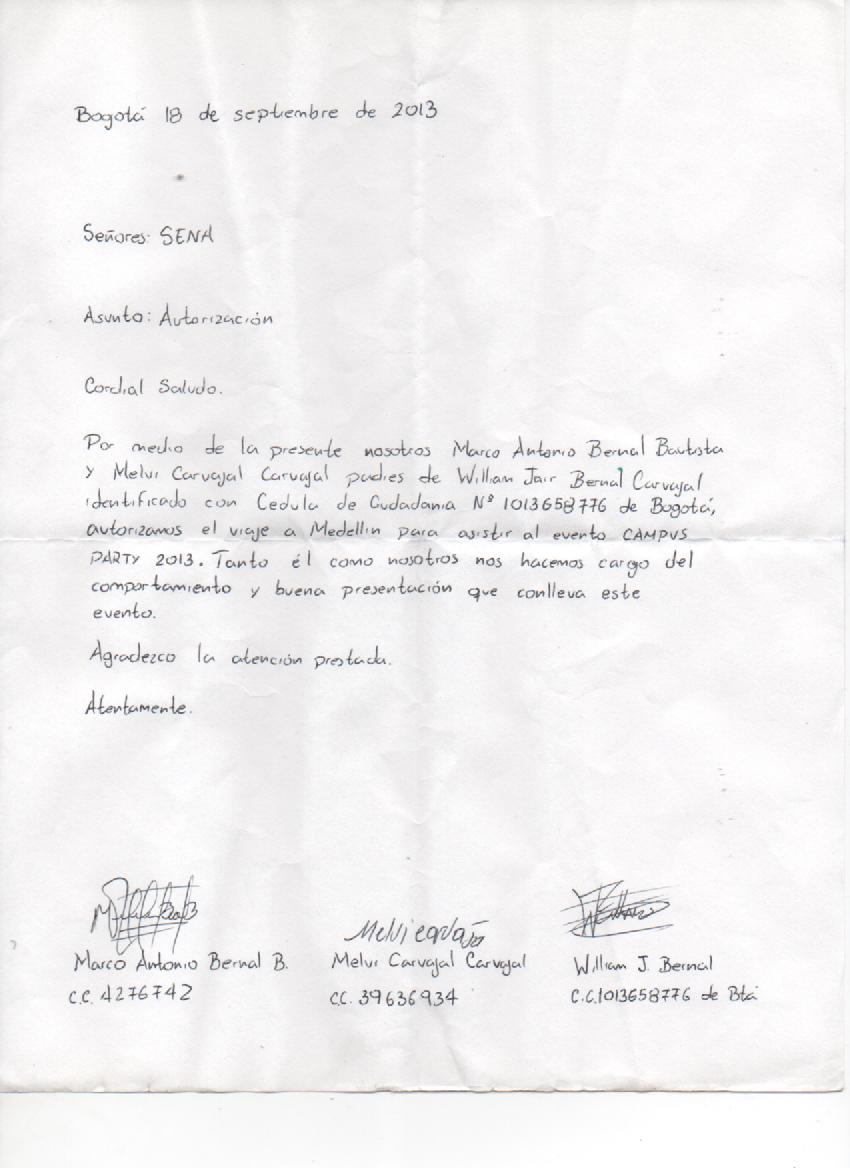 Bogotá 18 de septiembre de 2013
Señores: SENA
Asunto: Autorización
Cordial Saludo.
Por medio de la presente nosotros Marco Antonio Bernal Bautista
y Melvi Carvajal Carvajal padres de William Jair Bernal Carvajal
identificado con Cedula de Ciudadania Nº 1013658776 de Bogotá,
autorizamos el viaje a Medellin para asistir al evento CAMPUS
PARTY 2013. Tanto él como nosotros nos hacemos cargo del
comportamiento y buena presentación que conlleva este
evento.
Agradezco la atención prestada.
Atentamente.
Marco Antonio Bernal B. Melvi Carvajal Carvajal William J. Bernal
C.C. 4276742 CC. 39636934 C.C.1013658776 de Btá